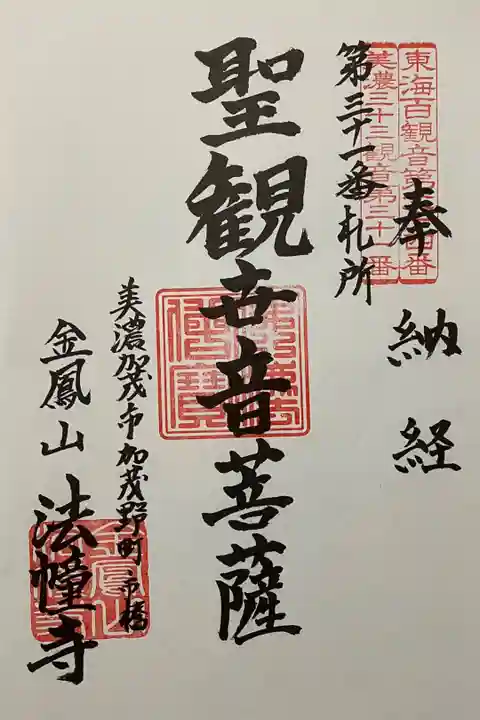 東海百観音第
番
美濃三十三観音第三十一番
奉納経
第三十一番札所
聖観世音菩薩
美濃加茂市加茂野町市橋
金鳳山法幢寺